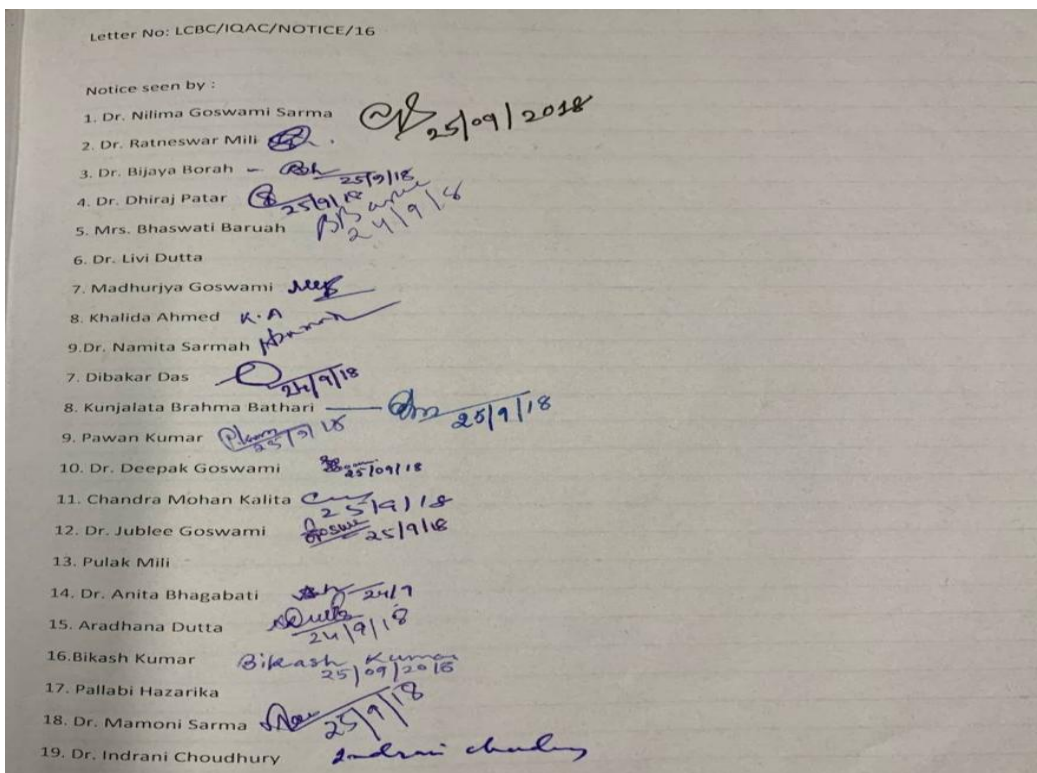 Letter No: LCBC/IQAC/NOTICE/16
Notice seen by :
1. Dr. Nilima Goswami Sarma 25/09/2018
2. Dr. Ratneswar Mili
3. Dr. Bijaya Borah – 25/9/18
4. Dr. Dhiraj Patar 25/9/18
5. Mrs. Bhaswati Baruah 24/9/18
6. Dr. Livi Dutta
7. Madhurjya Goswami
8. Khalida Ahmed K.A
9.Dr. Namita Sarmah
7. Dibakar Das 24/9/18
8. Kunjalata Brahma Bathari 25/9/18
9. Pawan Kumar 25/9/18
10. Dr. Deepak Goswami 25/09/18
11. Chandra Mohan Kalita 25/9/18
12. Dr. Jublee Goswami 25/9/18
13. Pulak Mili
14. Dr. Anita Bhagabati 24/9
15. Aradhana Dutta ADutta 24/9/18
16.Bikash Kumar Bikash Kumar 25/09/2018
17. Pallabi Hazarika
18. Dr. Mamoni Sarma 25/9/18
19. Dr. Indrani Choudhury Indrani